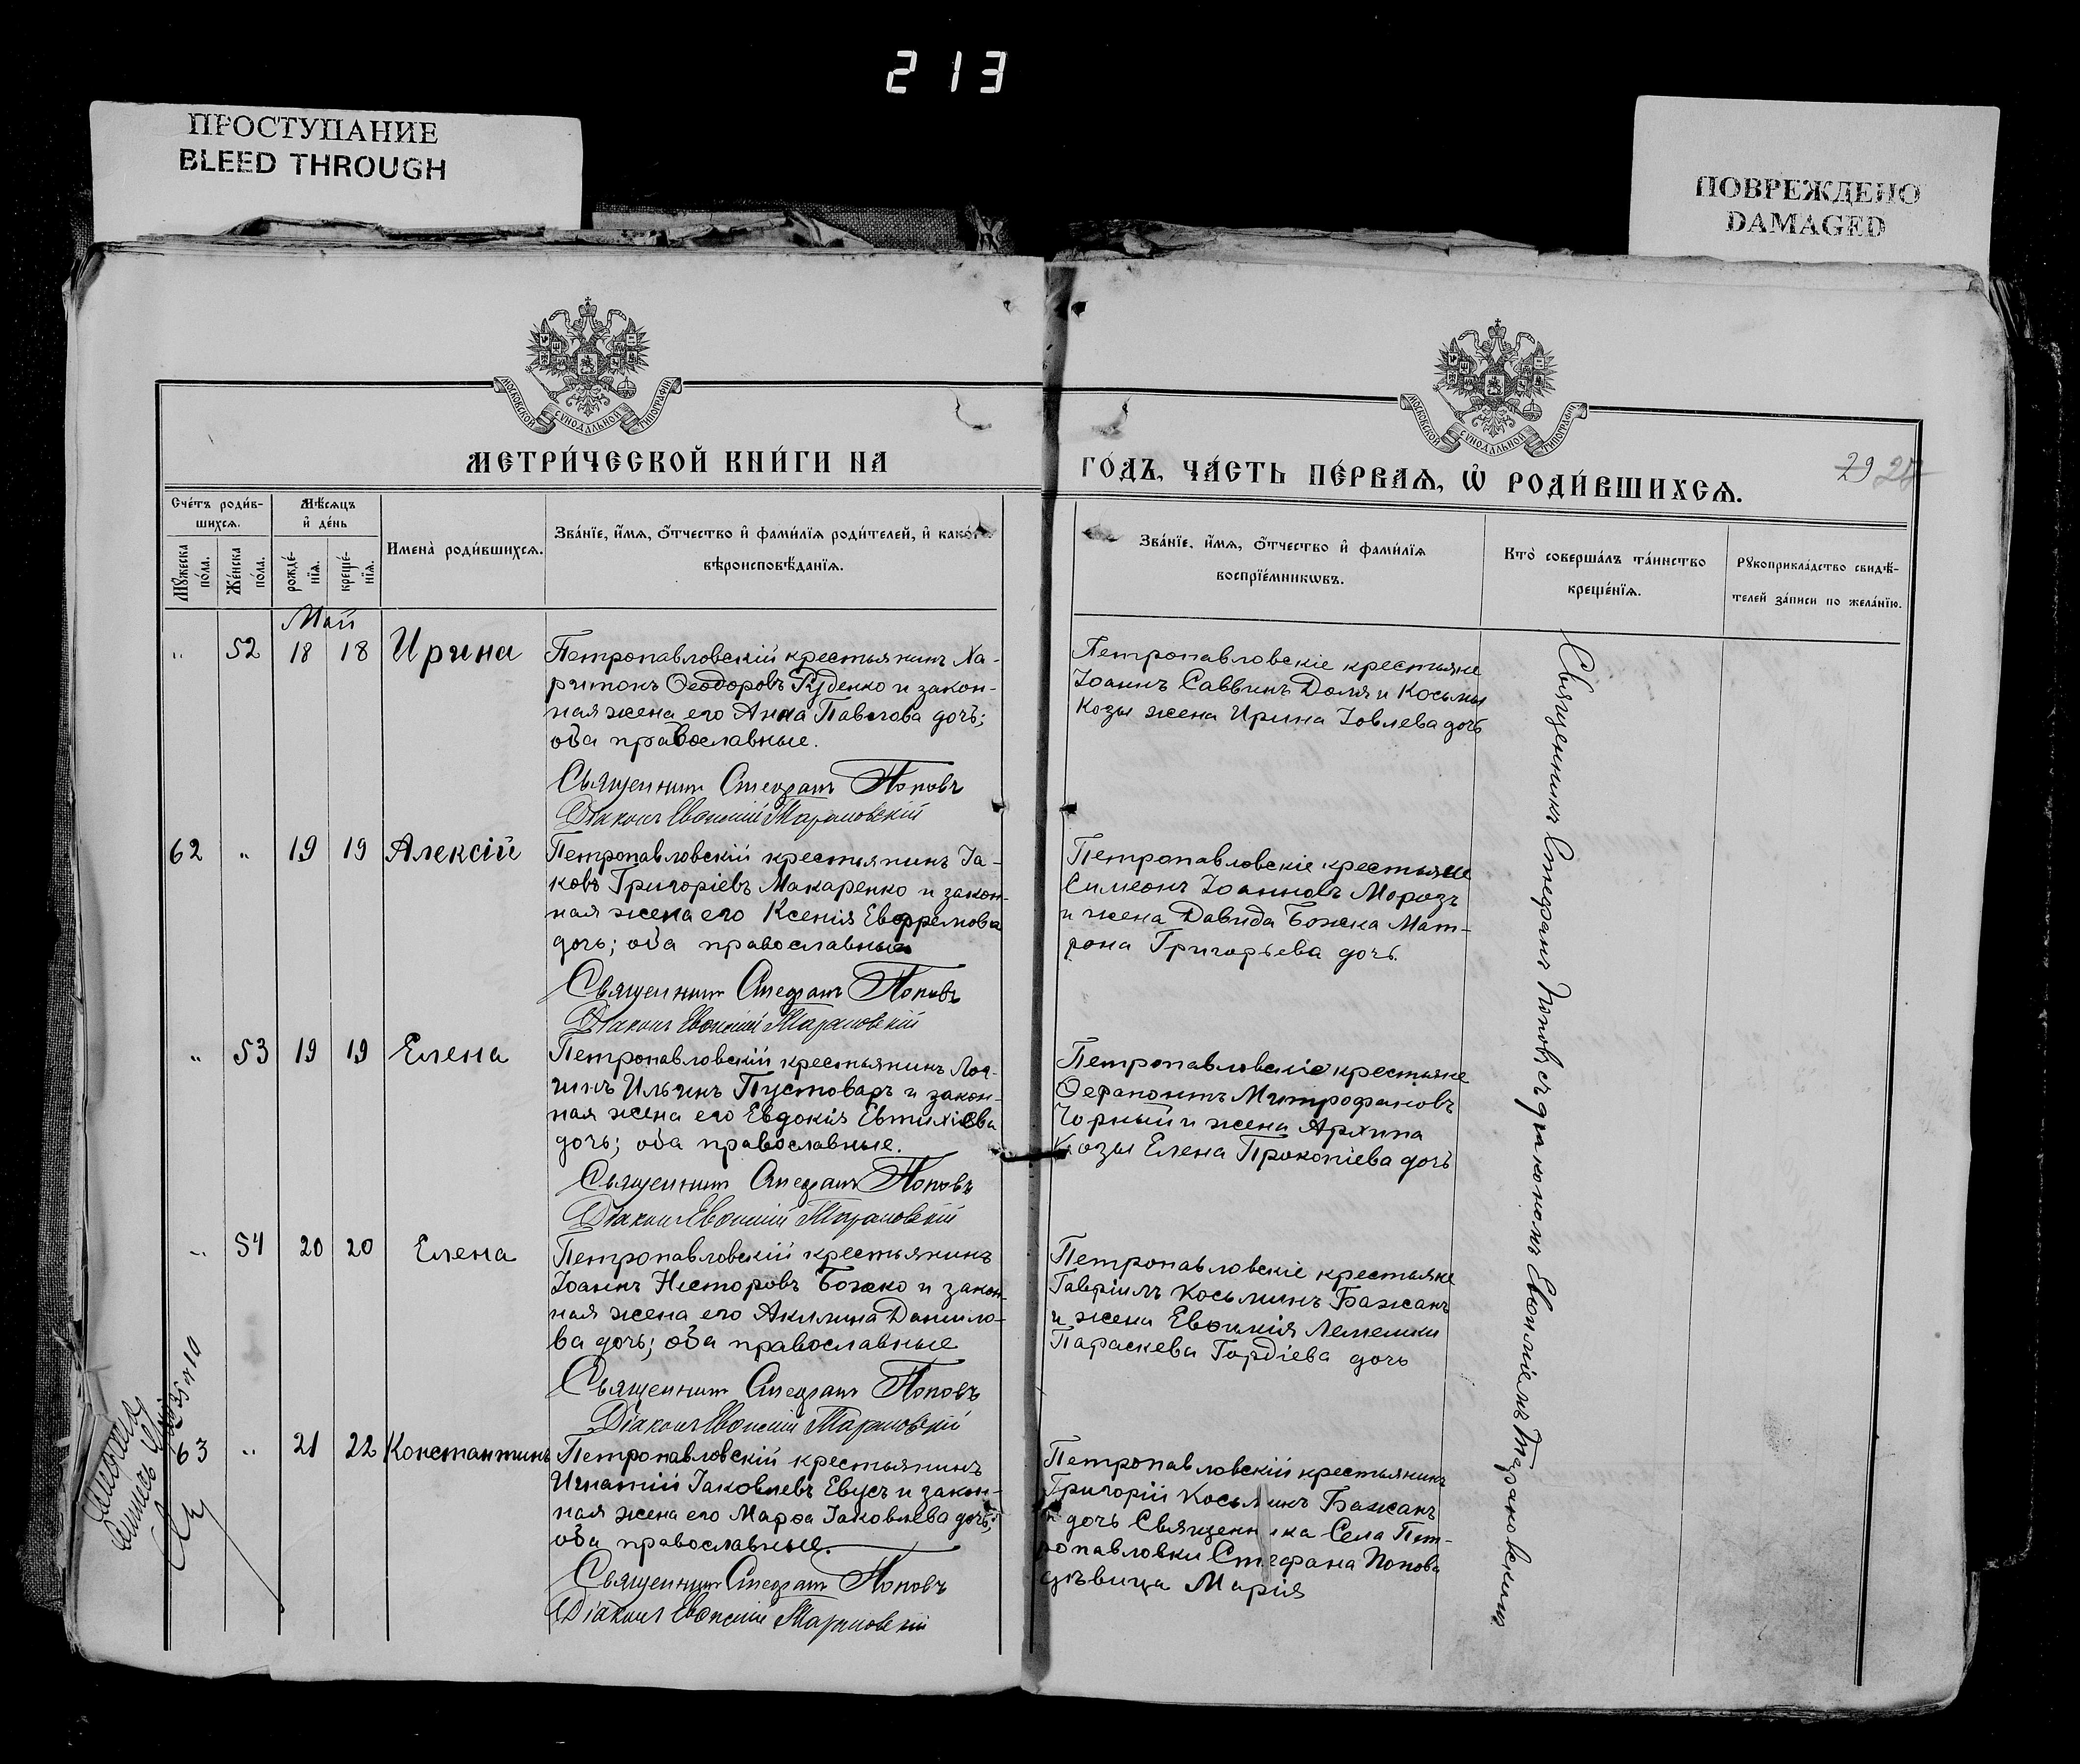 213
ПРОСТУПАНИЕ
BLEED THROUGH
ПОВРЕЖДЕНО
DAMAGED
МОСКОВСКОЙ СѴНОДАЛЬНОЙ ТИПОГРАФІИ
МОСКОВСКОЙ СѴНОДАЛЬНОЙ ТИПОГРАФІИ
МЕТРИ́ЧЕСКОЙ КНИ́ГИ НА
ГО́ДЪ, ЧА́СТЬ ПЕ́РВАѦ, Ѡ҆ РОДИ́ВШИХСѦ.
29
Сче́тъ роди́в-
шихсѧ.
Мѣ́сѧцъ
и҆ де́нь
Имена̀ роди́вшихсѧ.
Зва́нїе, и҆́мѧ, ѻ҆́тчество и҆ фами́лїѧ роди́телей, и҆ како́гѡ
вѣроисповѣ́данїѧ.
Мꙋ́жеска
по́ла.
Же́нска
по́ла.
рожде́-
нїѧ.
креще́-
нїѧ.
Зва́нїе, и҆́мѧ, ѻ҆́тчество и҆ фами́лїѧ
воспрїе́мникѡвъ.
Кто̀ соверша́лъ та́инство
креще́нїѧ.
Рꙋкоприкла́дство свидѣ́-
телей за́писи по жела́нїю.
Май
" 52 18 18 Ирина
Петропавловскій крестьянинъ Ха-
ритонъ Ѳеодоровъ Руденко и закон-
ная жена его Анна Павлова дочь;
оба православные.
Священникъ Стефанъ Поповъ
Діаконъ Евѳимій Тарановскій
Петропавловскіе крестьяне
Іоаннъ Саввинъ Доля и Косьмы
Козы жена Ирина Іовлева дочь
62 " 19 19 Алексій
Петропавловскій крестьянинъ Іа-
ковъ Григоріевъ Макаренко и закон-
ная жена его Ксенія Евфремова
дочь; оба православные
Священникъ Стефанъ Поповъ
Діаконъ Евѳимій Тарановскій
Петропавловскіе крестьяне
Симеонъ Іоанновъ Морозъ
и жена Давида Божка Мат-
рона Григорьева дочь.
" 53 19 19 Елена
Петропавловскій крестьянинъ Лог-
гинъ Ильинъ Пустоваръ и закон-
ная жена его Евдокія Евтихіева
дочь; оба православные.
Священникъ Стефанъ Поповъ
Діаконъ Евѳимій Тарановскій
Петропавловскіе крестьяне
Ѳерапонтъ Митрофановъ
Чорный и жена Архипа
Козы Елена Прокопіева дочь
" 54 20 20 Елена
Петропавловскій крестьянинъ
Іоаннъ Несторовъ Божко и закон-
ная жена его Акилина Данило-
ва дочь; оба православные
Священникъ Стефанъ Поповъ
Діаконъ Евѳимій Тарановскій
Петропавловскіе крестьяне
Гавріилъ Косьминъ Бажанъ
и жена Евѳимія Лемешки
Параскева Гордіева дочь
63 " 21 22 Константинъ
Петропавловскій крестьянинъ
Игнатій Іаковлевъ Евусъ и закон-
ная жена его Марѳа Іаковлева дочь;
оба православные.
Священникъ Стефанъ Поповъ
Діаконъ Евѳимій Тарановскій
Петропавловскій крестьянинъ
Григорій Косьминъ Бажанъ
и дочь Священника Села Пет-
ропавловки Стефана Попова
дѣвица Марія
Священникъ Стефанъ Поповъ съ діакономъ Евѳиміемъ Тарановскимъ